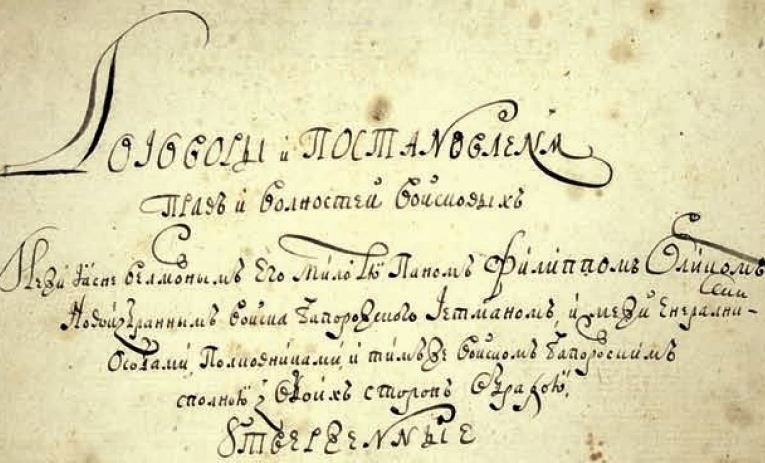 Договоры и Постановлення
Правъ и волностей войсковыхъ
Межи Ясне велможнымъ Его Милостю Паномъ Филиппомъ Орликомъ
Новоизбраннымъ войска Запорожского Гетманомъ, и межи Енерални-
Особами, Полковниками, и тимъже войскомъ Запорожскимъ
сполною з Обоихъ сторонъ Обрадою,
Утвержеnные